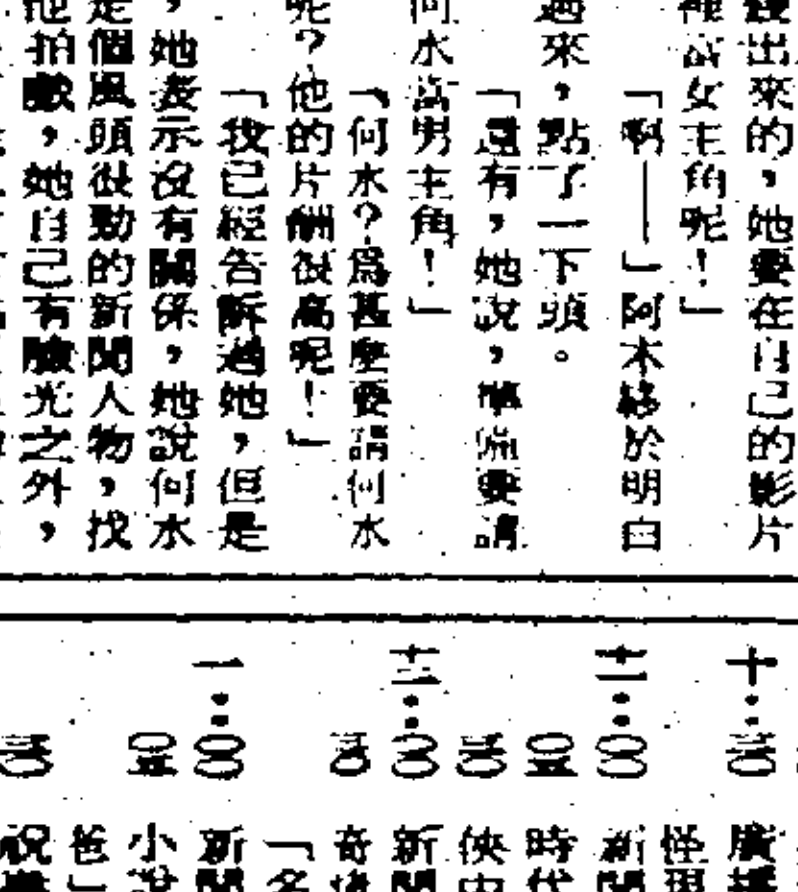 錢出來的，她要在自己的影片
裡當女主角呢！」
「啊——」阿木終於明白
過來，點了一下頭。
「還有，她說，準備要請
何水當男主角！」
「何水？爲甚麼要請何水
呢？他的片酬很高呢！」
「我已經告訴過她，但是
，她表示沒有關係，她說何水
是個風頭很勁的新聞人物，找
他拍戲，她自己有臉光之外，
十：三〇
十一：〇〇
十二：〇〇
一：〇〇
〇五
新聞
時代
俠中
新聞
「名
新聞
小說
爸」